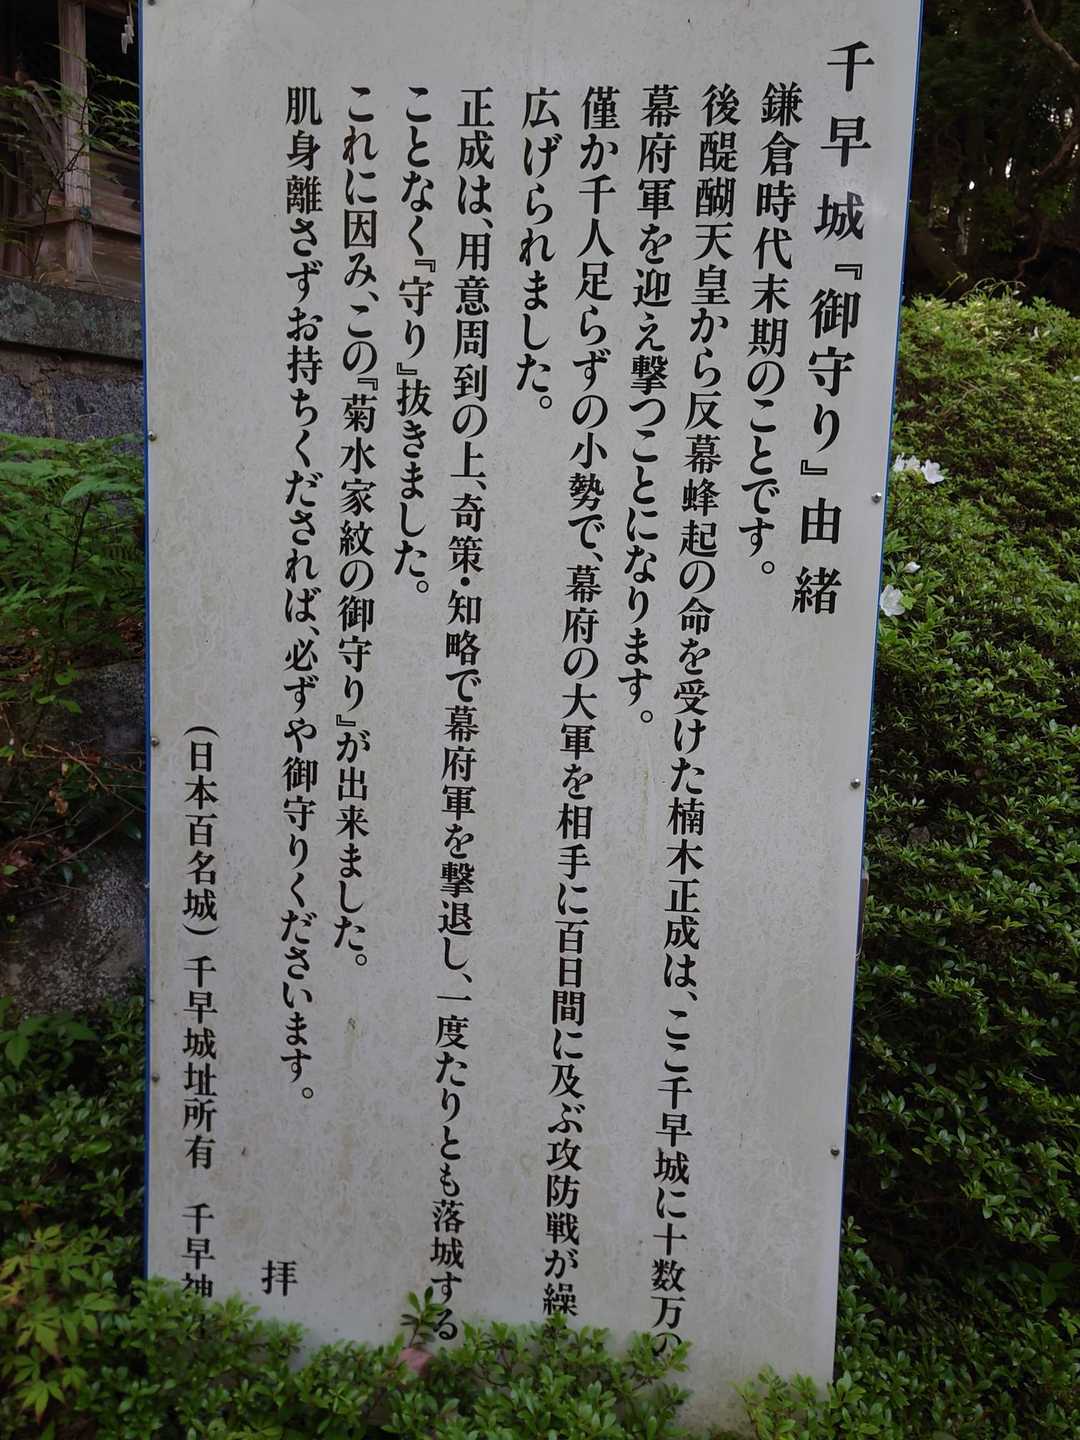 千早城『御守り』由緒
鎌倉時代末期のことです。
後醍醐天皇から反幕蜂起の命を受けた楠木正成は、ここ千早城に十数万の
幕府軍を迎え撃つことになります。
僅か千人足らずの小勢で、幕府の大軍を相手に百日間に及ぶ攻防戦が繰
広げられました。
正成は、用意周到の上、奇策・知略で幕府軍を撃退し、一度たりとも落城する
ことなく『守り』抜きました。
これに因み、この『菊水家紋の御守り』が出来ました。
肌身離さずお持ちくだされば、必ずや御守りくださいます。
拝
(日本百名城)千早城址所有 千早神